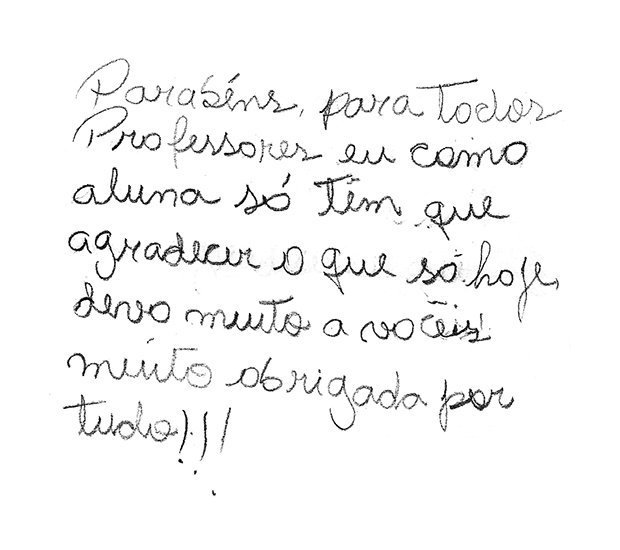 Parabéns, para todos
Professores eu como
aluna só têm que
agradecer o que só hoje,
devo muito a vocëis
muito obrigada por
tudo!!!